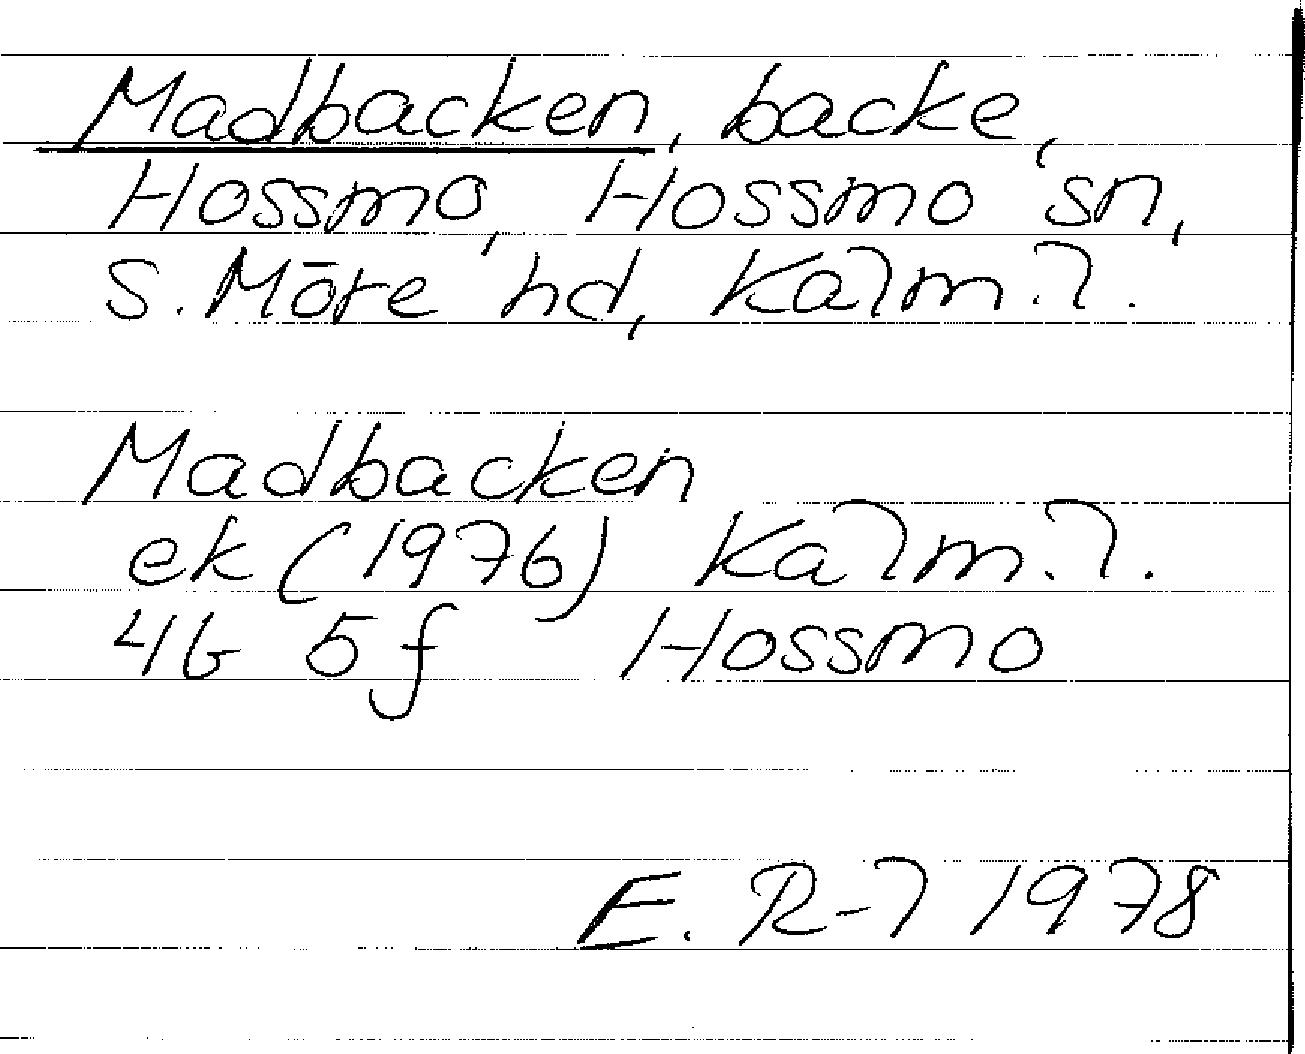 Madbacken, backe,
Hossmo, Hossmo sn,
S. Möre hd, Kalm. l.
Madbacken
ek (1976) Kalm. l.
4G 5f Hossmo
E. R-l 1978